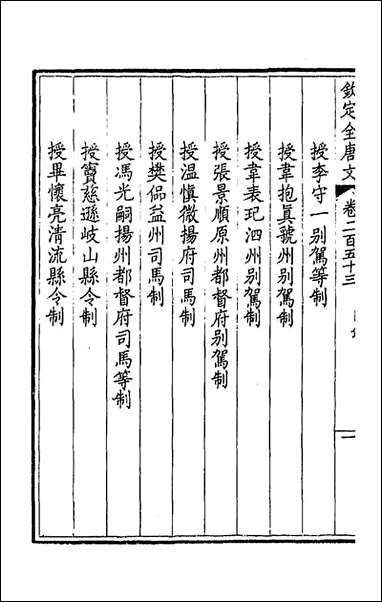 欽定全唐文 卷二百五十三
授李守一别駕等制
授韋抱真虢州别駕制
授韋表玘泗州别駕制
授張景順原州都督府别駕制
授温慎微揚府司馬制
授樊偘益州司馬制
授馮光嗣揚州都督府司馬等制
授竇慈遜岐山縣令制
授畢懷亮清流縣令制